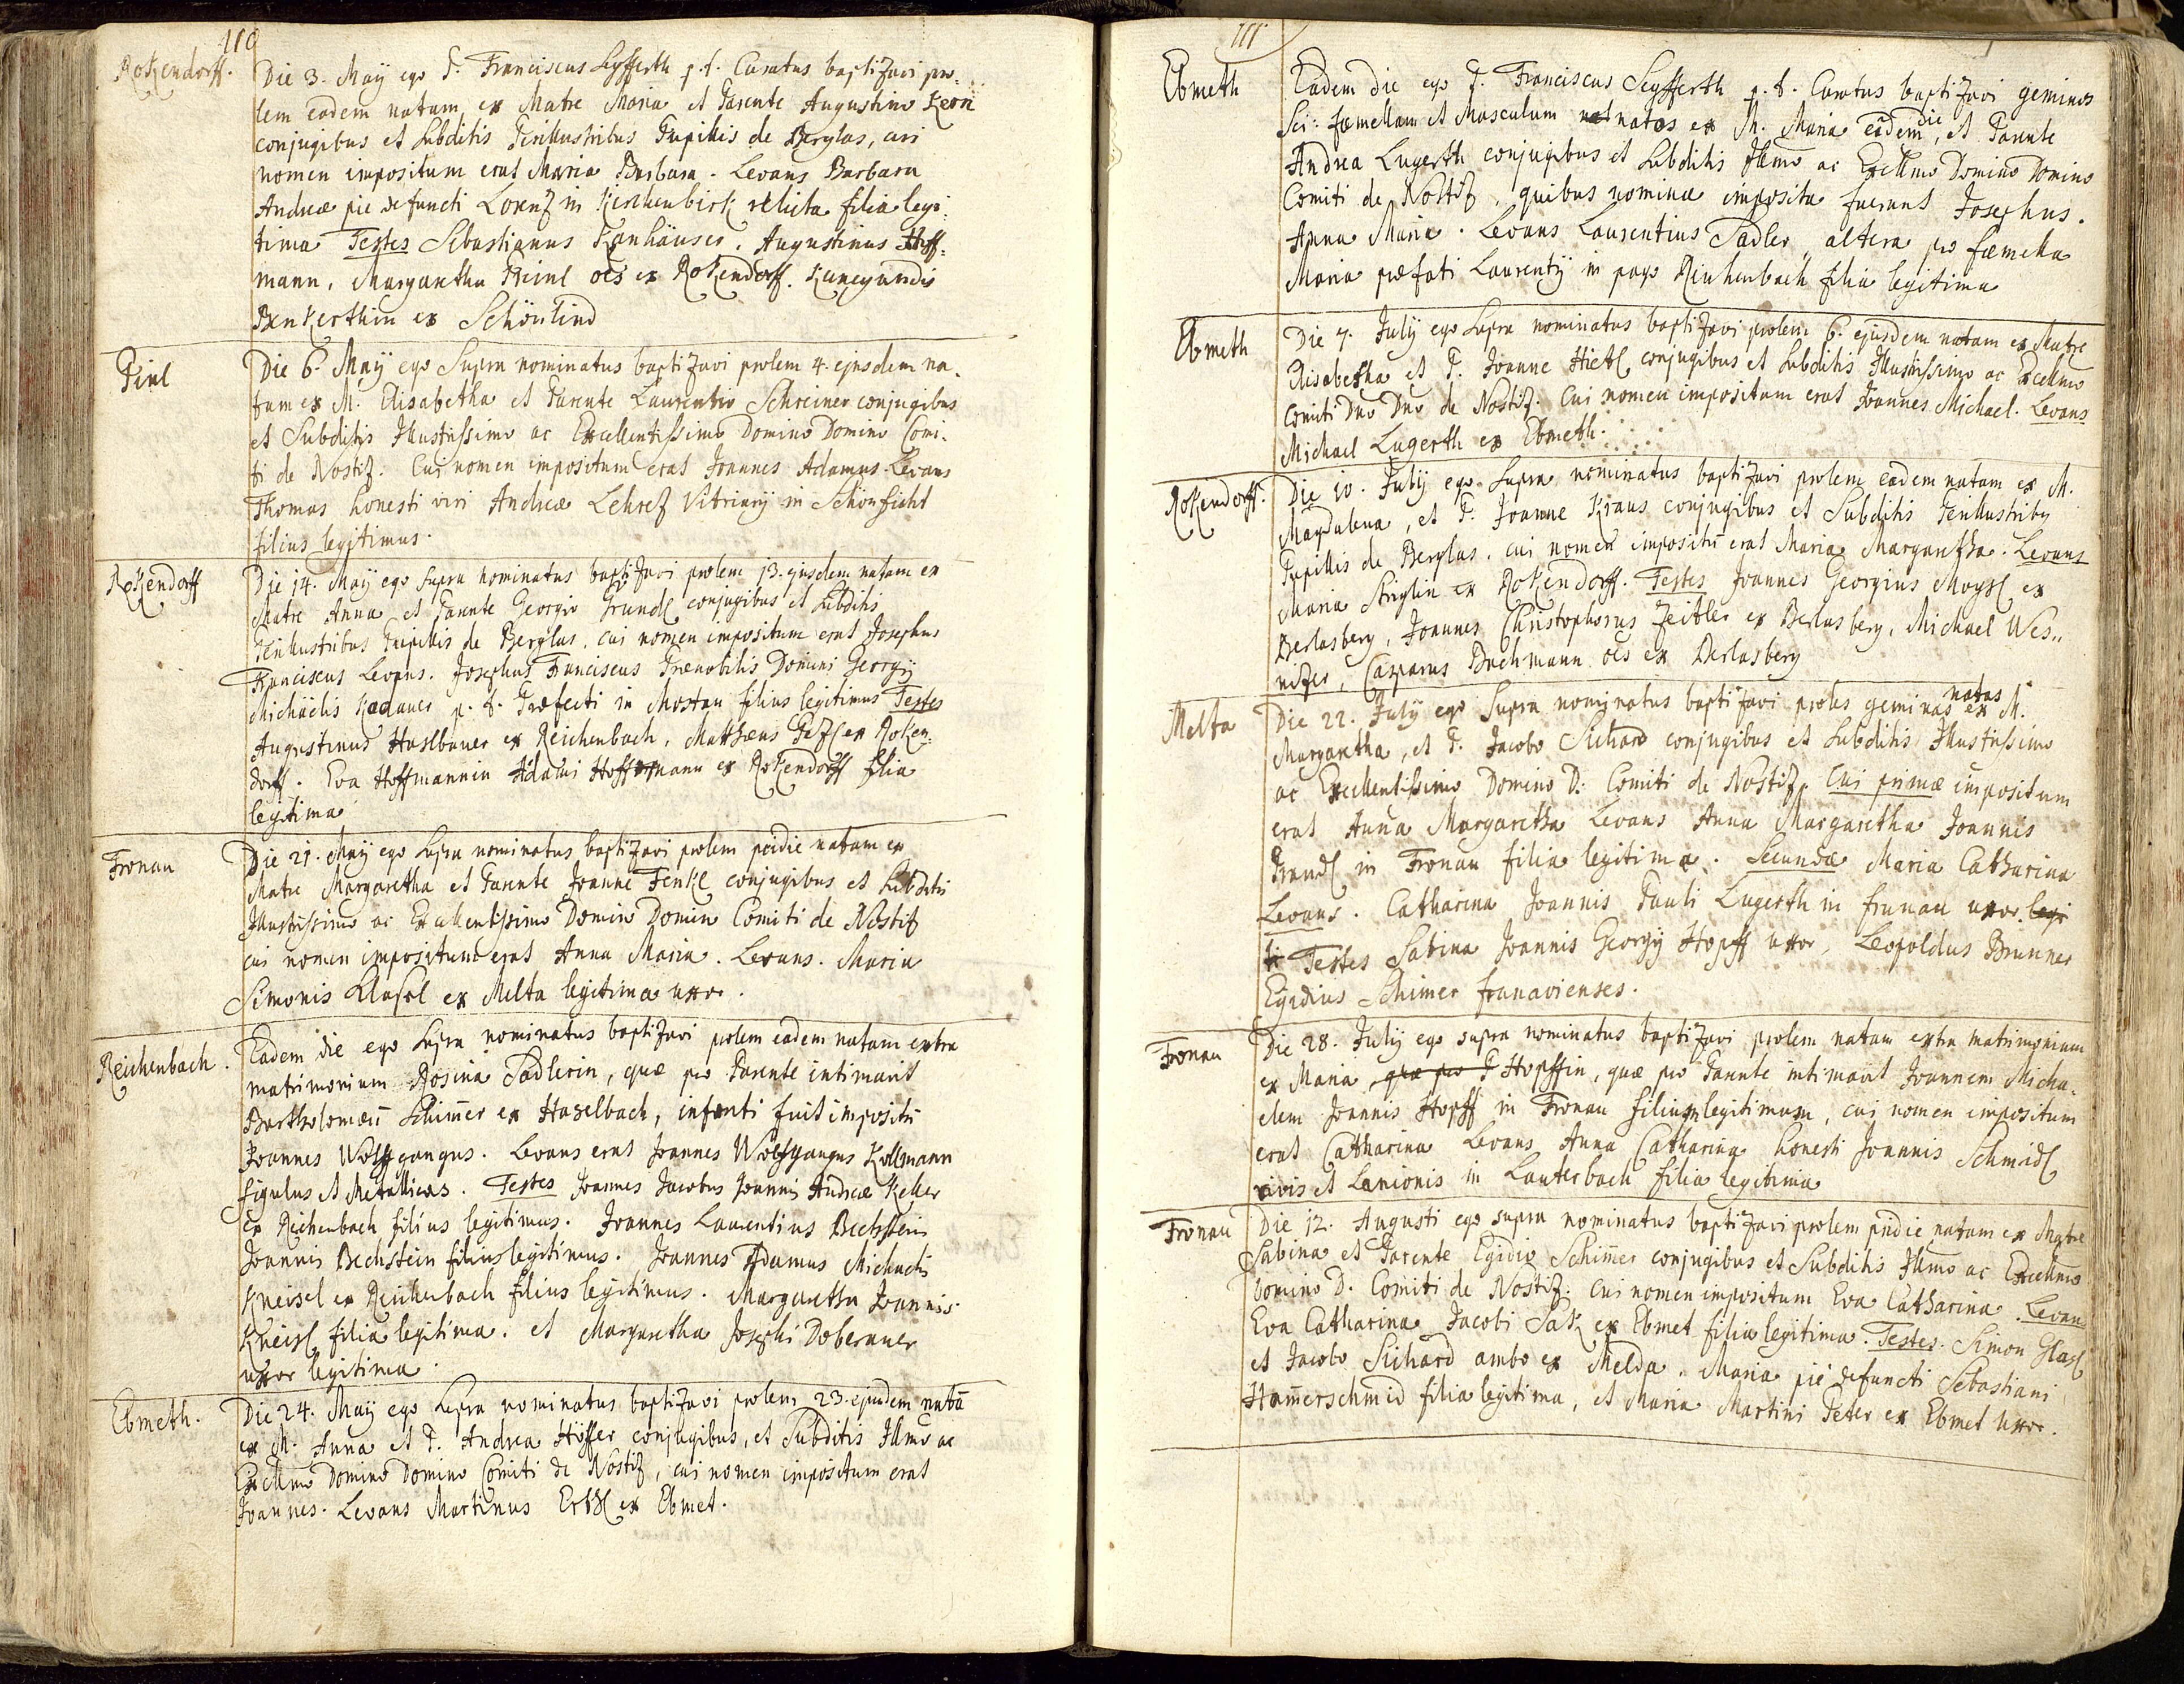 110
Rokendorff.
Die 3. Maÿ ego P. Franciscus Syfferth p. t. Curatus baptizavi pro-
lem eadem natam ex Matre Maria et Parente Augustino Kern
conjugibus et Subditis Perillustribus Pupillis de Berglas, cui
nomen impositum erat Maria Barbara. Levans Barbara
Andreæ pie defuncti Lorenz in Kirchenbirk relicta filia legi-
tima Testes Sebastianus Kanhäuser. Augustinus Hoff-
mann, Margaretha Heinl oēs ex Rokendorff. Kunegundis
Benkerthin ex Schönlind
Pirl
Die 6. Maÿ ego Supra nominatus baptizavi prolem 4. ejusdem na-
tam ex M. Elisabetha et Parente Laurentio Schreiner conjugibus
et Subditis Illustrissimo ac Excellentissimo Domino Domino Comi-
ti de Nostiz. Cui nomen impositum erat Joannes Adamus. Levans
Thomas honesti viri Andreæ Lehrer Vitriarÿ in Schönficht
filius legitimus.
Rokendorff
Die 14. Maÿ ego supra nominatus baptizavi prolem 13. ejusdem natam ex
Matre Anna et Parente Georgio Grundl conjugibus et Subditis
Perillustribus Pupillis de Berglas, cui nomen impositum erat Josephus
Franciscus Levans. Josephus Franciscus Prænobilis Domini Georgÿ
Michäelis Kadauer p. t. Præfecti in Mostau filius legitimus Testes
Augustinus Haslbauer ex Reichenbach, Matthæus ex Roken-
dorff. Eva Hoffmannin Adami Hoffmann ex Rokendorff filia
legitima
Fronau
Die 21. Maÿ ego Supra nominatus baptizavi prolem pridie natam ex
Matre Margaretha et Parente Joanne Fenkl conjugibus et Subditis
Illustrissimo ac Excellentissimo Domino Domino Comiti de Nostiz
cui nomen impositum erat Anna Maria. Levans. Maria
Simonis Klasel ex Melta legitima uxor.
Reichenbach.
Eadem die ego Supra nominatus baptizavi prolem eadem natam extra
matrimonium Rosina Sadlerin, quæ pro Parente intimavit
Bartholomæū Schim̄er ex Haselbach, infanti fuit impositū
Joannes Wolffgangus. Levans erat Joannes Wolffgangus Kollmann
figulus et Metallicus. Testes Joannes Jacobus Joannis Andreæ Keller
ex Reichenbach filius legitimus. Joannes Laurentius Bechstein
Joannis Bechstein filius legitimus. Joannes Adamus Michaelis
Kneisel ex Reichenbach filius legitimus. Margaretha Joannis
Kneisl filia legitima. et Margaretha Josephi Doberauer
uxor legitima.
Ebmeth.
Die 24. Maÿ ego Supra nominatus baptizavi prolem 23. ejusdem natā
ex M. Anna et P. Andrea Höffer conjugibus, et Subditis Illmo ac
Excellmo Domino Domino Comiti de Nostiz, cui nomen impositum erat
Joannes. Levans Martinus Ertl ex Ebmet.
111
Ebmeth
Eadem die ego P. Franciscus Seyfferth p. t. Curatus baptizavi geminos
Sci: fæmellam et Masculum nat natos ex M. Maria eadem die, et Parente
Andrea Lugerth conjugibus et Subditis Illmo ac Excellmo Domino Domino
Comiti de Nostiz, quibus nomina imposita fuerunt Josephus.
Anna Maria. Levans Laurentius Sadler, altera pro fæmella
Maria præfati Laurentÿ in pago Reichenbach filia legitima
Ebmeth
Die 7. Julÿ ego Supra nominatus baptizavi prolem 6. ejusdem natam ex Matre
Elisabetha et P. Joanne Hietl conjugibus et Subditis Illustrissimo ac Excellmo
Comiti Dno Dno de Nostiz. Cui nomen impositum erat Joannes Michael. Levans
Michael Lugerth ex Ebmeth.
Rokendorff.
Die 10. Julÿ ego Supra nominatus baptizavi prolem eadem natam ex M.
Magdalena, et P. Joanne Kraus conjugibus et Subditis Perillustribus
Pupillis de Berglas. cui nomen impositū erat Maria Margaretha. Levans
Maria Striglin ex Rokendorff. Testes Joannes Georgius Moysl ex
Berlasberg, Joannes Christophorus Zeitler ex Berlasberg, Michael Wes-
nizer, Casparus Bachmann oēs ex Berlasberg
Melta
Die 22. Julÿ ego Supra nominatus baptizavi proles geminas natas ex M.
Margaretha, et P. Jacobo Sichard conjugibus et Subditis Illustrissimo
ac Excellentissimo Domino D. Comiti de Nostiz. Cui primæ impositum
erat Anna Margaretha Levans Anna Margaretha Joannis
Grundl in Fronau filia legitima. Secundæ Maria Catharina
Levans. Catharina Joannis Pauli Lugerth in fronau uxor. legi
ti Testes Sabina Joannis Georgÿ Hopff uxor, Leopoldus Brunner
Egidius Schimer fronavienses.
Fronau
Die 28. Julÿ ego supra nominatus baptizavi prolem natam extra matrimonium
ex Maria quæ pro P Hopffin, quæ pro Parente intimavit Joannem Micha-
elem Joannis Hopff in Fronau filium legitimum, cui nomen impositum
erat Catharina Levans Anna Catharina honesti Joannis Schmidl
civis et Lanionis in Lauterbach filia legitima
Fronau
Die 12. Augusti ego supra nominatus baptizavi prolem pridie natam ex Matre
Sabina et Parente Egidio Schim̄er conjugibus et Subditis Illmo ac Excellmo
Domino D. Comiti de Nostiz. Cui nomen impositum Eva Catharina. Levans
Eva Catharina Jacobi Sak ex Ebmet filia legitima. Testes. Simon Glasl
et Jacobo Sichard ambo ex Melda. Maria pie defuncti Sebastiani
Ham̄erschmid filia legitima, et Maria Martini Peter ex Ebmet uxor.